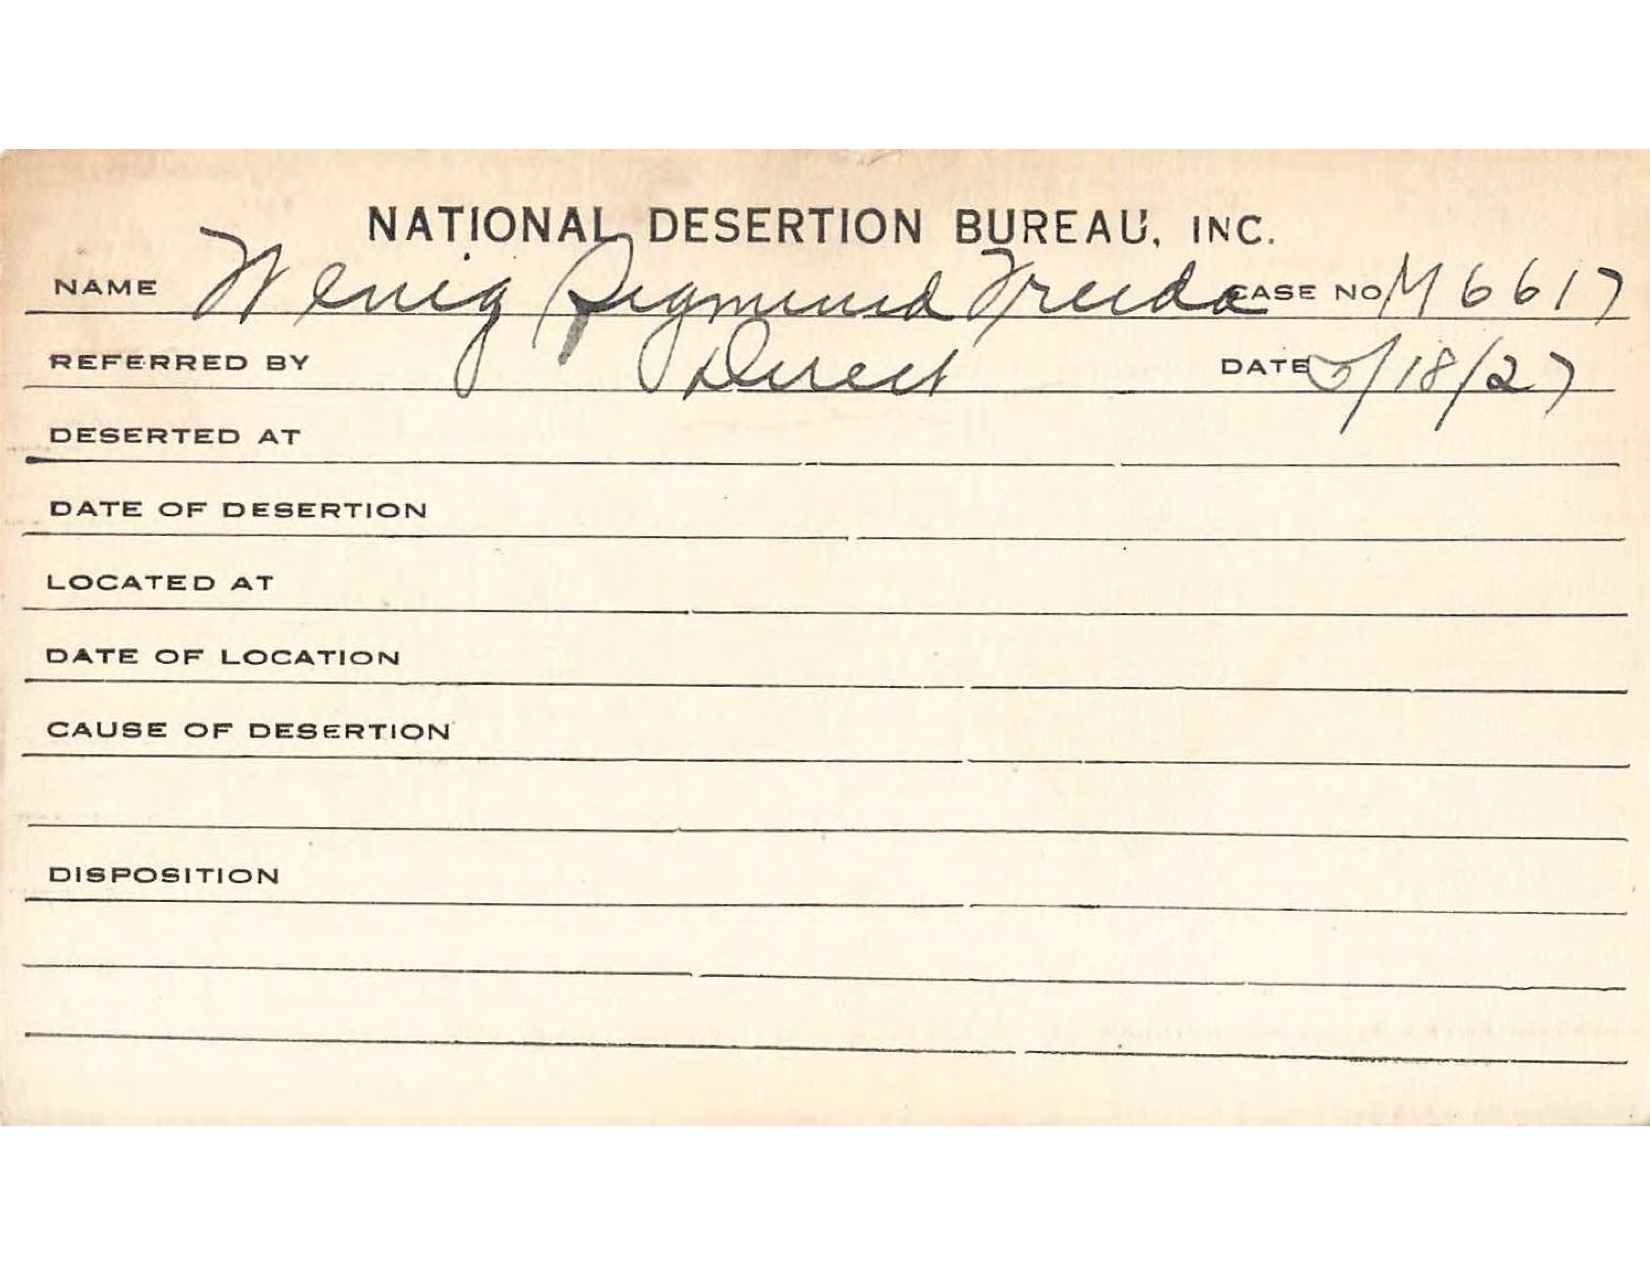 NATIONAL DESERTION BUREAU, INC.
NAME Wenig Sigmund Freida CASE NO M6617
REFERRED BY Direct DATE 2/18/27
DESERTED AT
DATE OF DESERTION
LOCATED AT
DATE OF LOCATION
CAUSE OF DESERTION
DISPOSITION